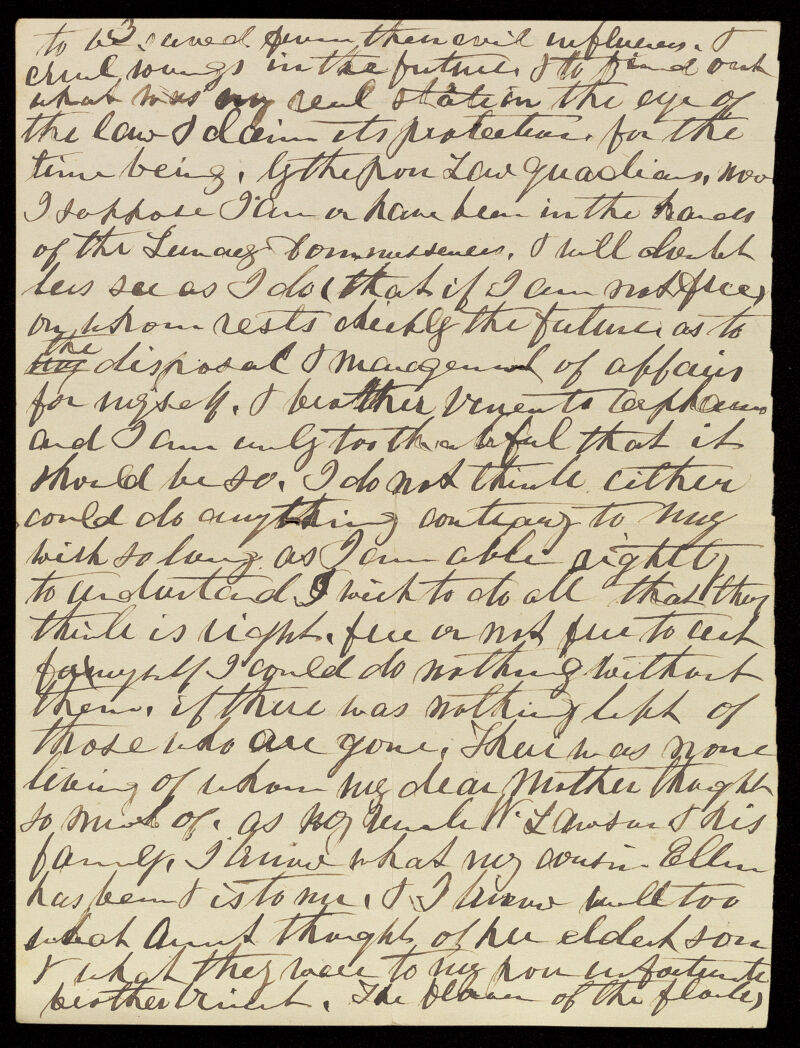 3
to be saved from their evil influences. &
cruel wrongs in the future. & to find out
what was my real station the eye of
the law & claim its protection. for the
time being. by the poor Law guardians. now
I suppose I am or have been in the hands
of the Lunacy Commissioners. & will doubt
less see as I do (that if I am not free)
on whom rests chiefly the future as to
the
my disposal & management of affairs
for myself. & brother Vincents
and I am only too thankful that it
should be so. I do not think either
could do anything contrary to my
wish so long as I am able rightly
to understand I wish to do all that they
think is right. free or not free to act
for myself I could do nothing without
them. if there was nothing left of
those who are gone. There was none
living of whom my dear Mother thought
so much of. as my uncle W. Lawson & his
family. I know what my cousin Ellen
has been & is to me. & I know well too
what Aunt thought of her eldest son
& what they were to my poor unfortunate
brother Vincent. The flower of the flock)